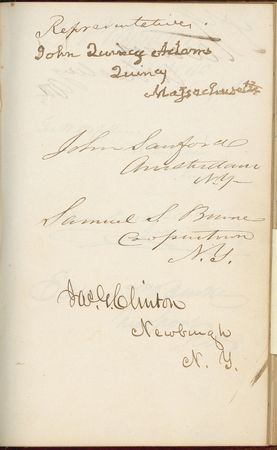 Representatives.
John Quincy Adams
Quincy
Massachusetts
John Sanford
Amsterdam
N.Y.
Samuel S Bowne
Cooperstown
N.Y.
Jas. G. Clinton
Newburgh
N. Y.